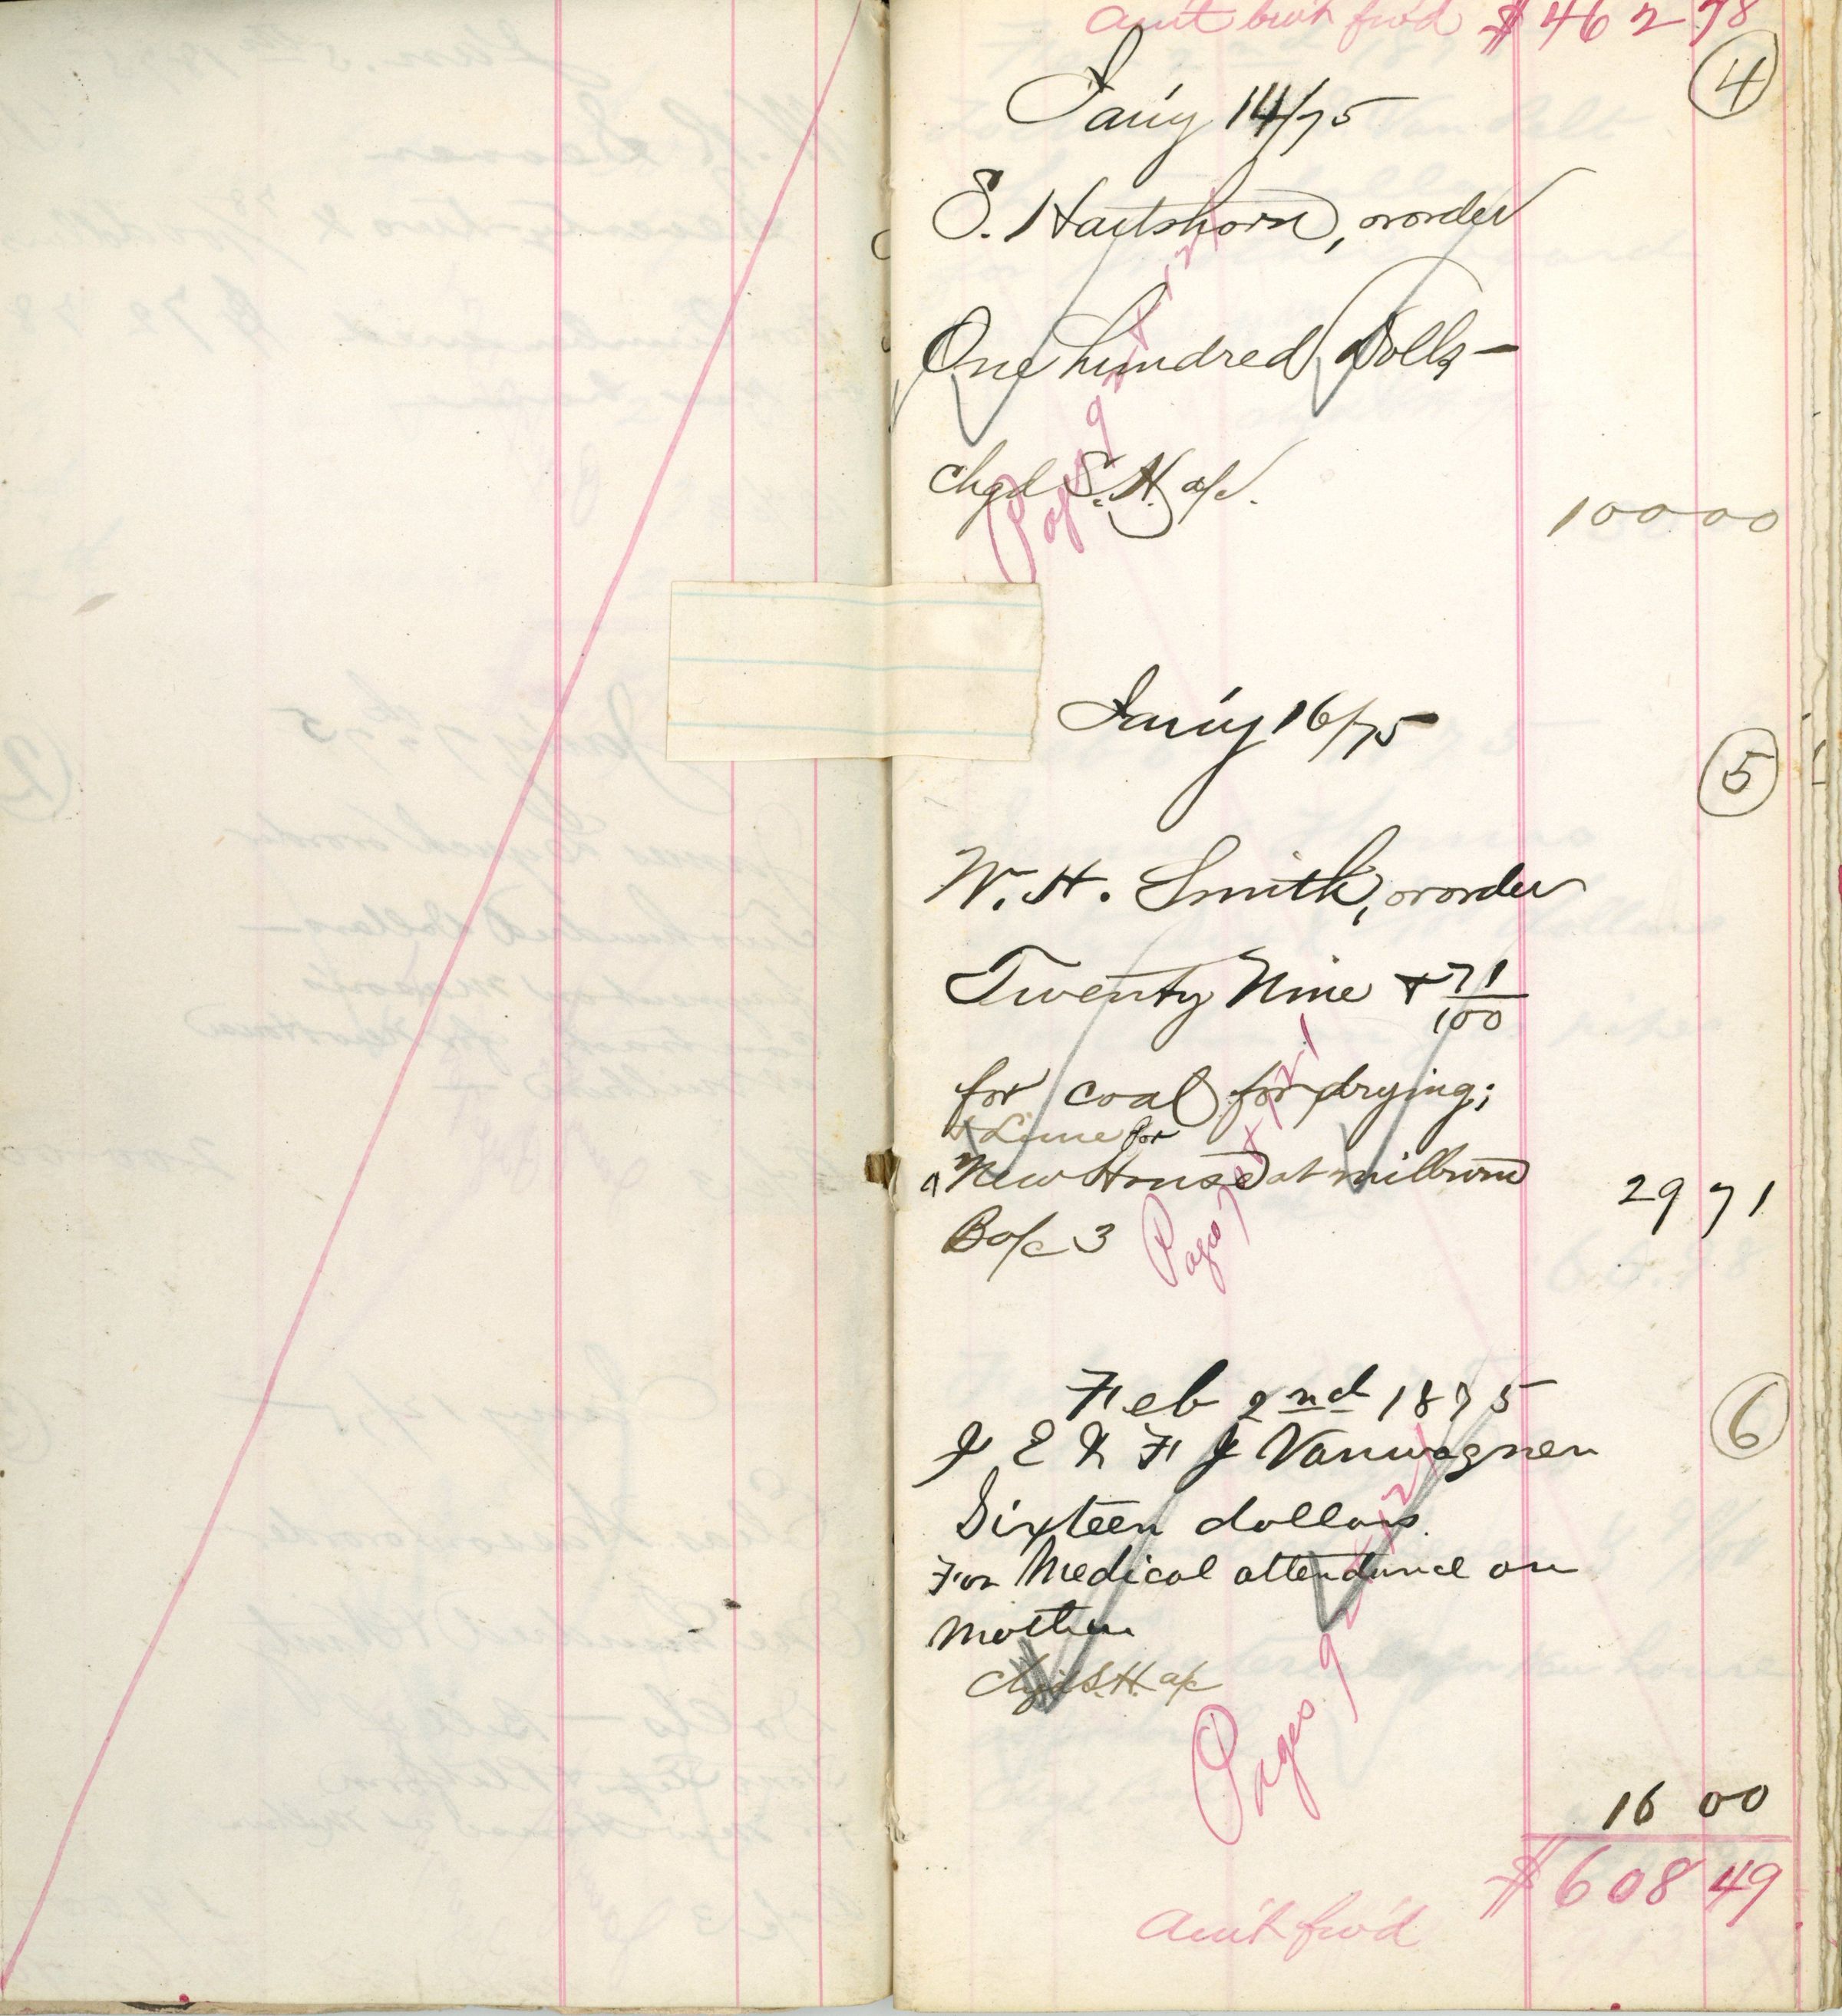 am't bro't fw'd $462 78
(4)
Jan'y 14/75
S. Hartshorn, or order
One hundred Dolls—
chgd S. H. a/c.
100 00
Jan'y 16/75
(5)
W. H. Smith, or order
Twenty Nine & 71/100
for coal for drying;
& Lime for
New House at Milburn
B a/c 3
29 71
Feb 2nd 1875
(6)
Vanwagnen
Sixteen dollars
For Medical attendance on
Mother
Chgd S. H. a/c
Pages 9
16 00
$608 49
am't fw'd